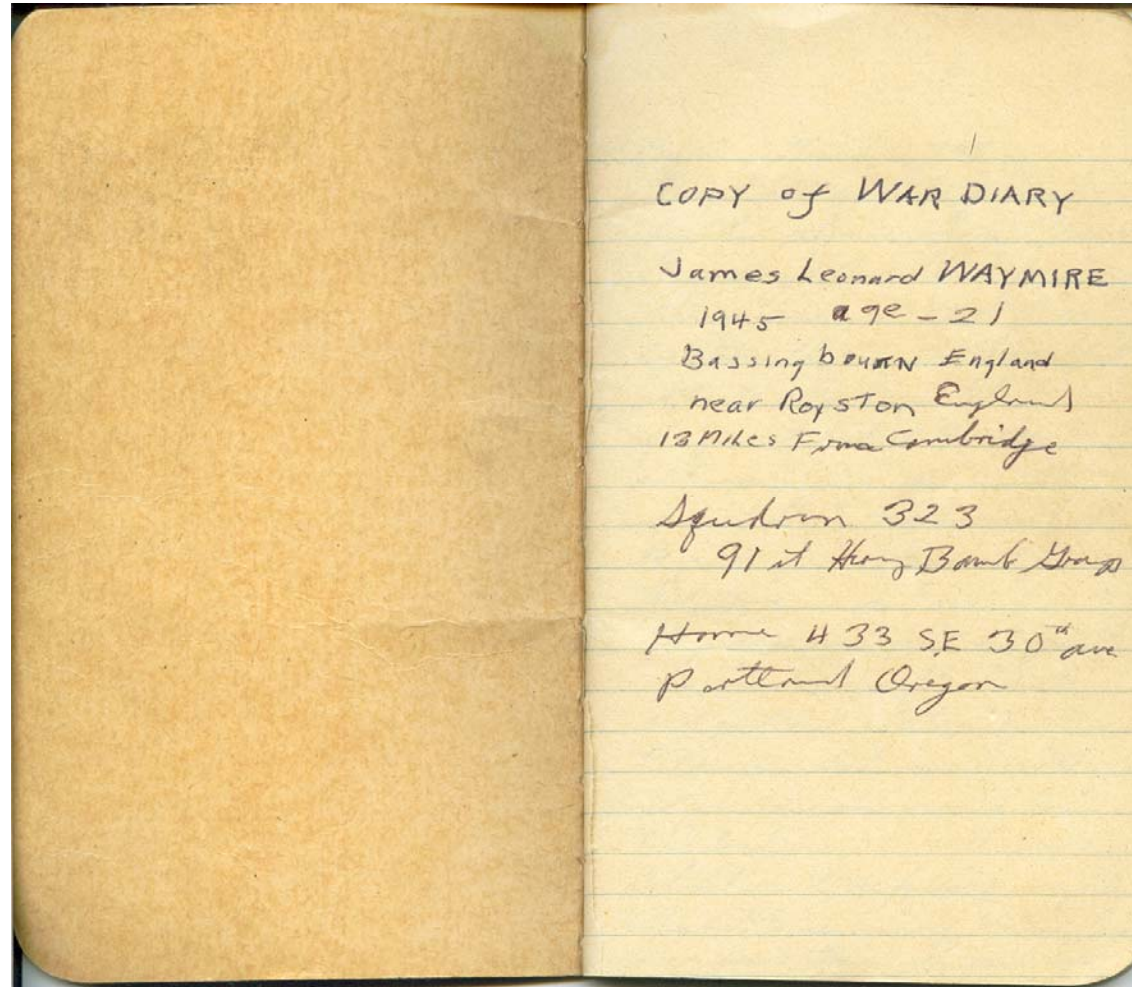 COPY of WAR DIARY
James Leonard WAYMIRE
1945 age - 21
Bassingbourn England
near Royston England
13 Miles From Cambridge
Squdron 323
91st Heavy Bomb Group
Home 433 S.E 30th ave
Portland Oregon